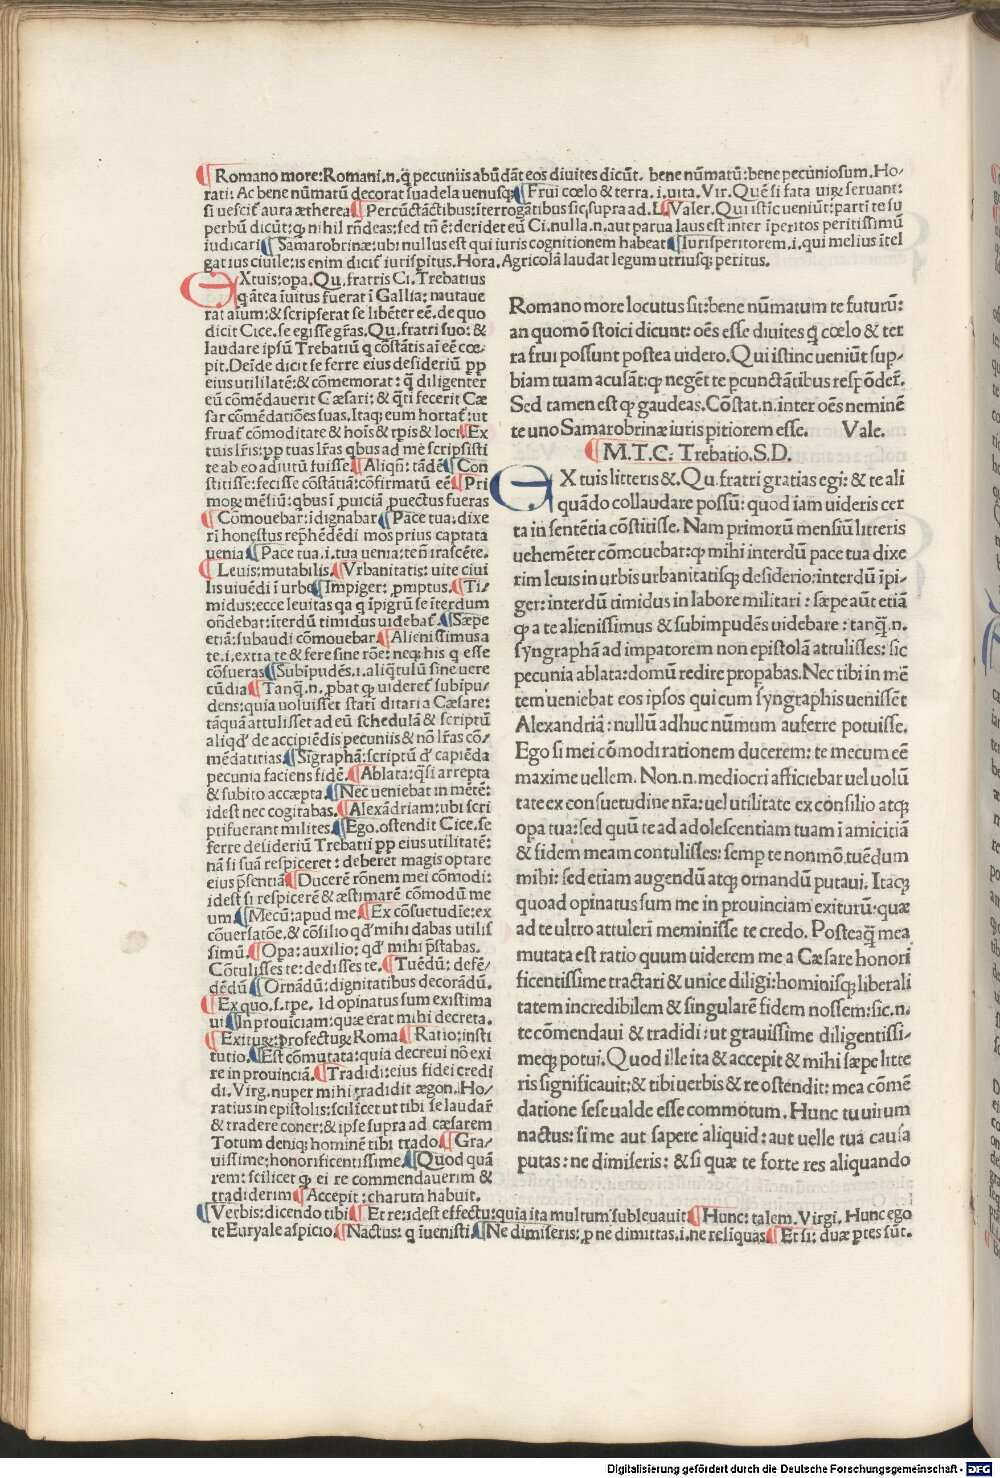 Romano more: Romani.n.q̃ pecuniis abũdãt eos diuites dicũt. bene nũmatũ: bene pecuniosum. Ho-
rati: Ac bene nũmatũ decorat suadela uenusq; Frui cœlo & terra.i.uita. Vir. Quẽ si fata uiꝝ seruant:
si uescit̃ aura ætherea Percũctãctibus: ĩterrogãtibus sic supra ad.L. Valer. Qui istĩc ueniũt: partĩ te su
perbũ dicũt: ꝙ nihil rñdeas: sed tm̃ ẽ: deridet eũ Ci. nulla.n. aut parua laus est inter ĩperitos peritissimũ
iudicari Samarobrinæ: ubi nullus est qui iuris cognitionem habeat Iurisperitorem.i. qui melius ĩtel
gat ius ciuile: is enim dicit̃ iurispitus. Hora. Agricolã laudat legum utriusq; peritus.
EXtuis: opa. Qu. fratris Ci. Trebatius
q̃ ãtea ĩuitus fuerat ĩ Gallia: mutaue
rat aĩum: & scripserat se libẽter eẽ. de quo
dicit Cice. se egisse gr̃as. Qu. fratri suo: &
laudare ipsũ Trebatiũ q cõstãtis aĩ eẽ cœ-
pit. Deĩde dicit se ferre eius desideriũ pp
eius utilitatẽ: & cõmemorat: q̃ diligenter
eũ cõmẽdauerit Cæsari: & q̃ti fecerit Cæ
sar cõmẽdatiões suas. Itaq; eum hortat̃: ut
fruat̃ cõmoditate & hoĩs & tp̃is & loci Ex
tuis lr̃is: pp tuas lr̃as qbus ad me scripsisti
te ab eo adiutũ fuisse. Aliqñ: tãdẽ Con
stitisse: fecisse cõstãtiã: cõfirmatũ eẽ Pri
moꝝ mẽsiũ: qbus ĩ puiciã puectus fueras
Cõmouebar: ĩdignabar Pace tua: dixe
rĩ honestus rep̃hẽdẽdi mos prius captata
uenia Pace tua.i. tua uenia: te nĩ irascẽte.
Leuis: mutabilis. Vrbanitatis: uite ciui
lis uiuẽdi ĩ urbe Impiger: promptus. Ti-
midus: ecce leuitas qa q ĩpigrũ se ĩterdum
oñdebat: ĩterdũ timidus uidebat̃. Sæpe
etiã: subaudi cõmouebar Alienissimus a
te.i. extra te & fere sine rõe: neq; his q esse
cõsueras Subĩpudẽs.i. aliq̃tulũ sine uere
cũdia Tanq̃.n. pbat ꝙ uideret̃ subĩpu-
dens: quia uoluisset statĩ ditari a Cæsare:
tãquã attulisset ad eũ schedulã & scriptũ
aliqd̃ de accipiẽdis pecuniis & nõ lr̃as cõ-
mẽdatitias. Sĩgraphã: scriptũ d̃ capiẽda
pecunia faciens fidẽ. Ablata: q̃si arrepta
& subito accæpta Nec ueniebat in mẽtẽ:
idest nec cogitabas. Alexãdriam: ubi scri
pti fuerant milites. Ego. ostendit Cice. se
ferre desideriũ Trebatii pp eius utilitatẽ:
nã si suã respiceret: deberet magis optare
eius p̃sentiã Ducerẽ rõnem mei cõmodi:
idest si respicerẽ & æstimarẽ cõmodũ me
um. Mecũ: apud me Ex cõsuetudĩe: ex
cõuersatõe, & cõsilio qd̃ mihi dabas utilis
simũ. Opa: auxilio: qd̃ mihi p̃stabas.
Cõtulisses te: dedisses te. Tuẽdũ: defẽ-
dẽdũ Ornãdũ: dignitatibus decorãdũ.
Ex quo.s. tpe. Id opinatus sum existima
ui In prouiciam: quæ erat mihi decreta.
Exituꝝ: profectuꝝ Roma Ratio: insti
tutio. Est cõmutata: quia decreui nõ exi
re in prouinciã. Tradidi: eius fidei credi
di. Virg. nuper mihi tradidit ægon. Ho-
ratius in epistolis: scilicet ut tibi se laudar̃
& tradere coner: & ipse supra ad cæsarem
Totum deniq; hominẽ tibi trado. Gra-
uissime: honorificentissime. Quod quã
rem: scilicet ꝙ ei re commendauerim &
tradiderim Accepit: charum habuit.
Verbis: dicendo tibi Et re: idest effectu: quia ita multum subleuauit Hunc: talem. Virgi. Hunc ego
te Euryale aspicio. Nactus: q ĩuenisti Ne dimiseris: p ne dimittas.i. ne reliquas Et si: duæ ptes sũt.
Romano more locutus sit: bene nũmatum te futurũ:
an quomõ stoici dicunt: oẽs esse diuites q cœlo & ter
ra frui possunt postea uidero. Qui istinc ueniũt sup-
biam tuam acusãt: ꝙ negẽt te pcunctãtibus respõder̃.
Sed tamen est ꝙ gaudeas. Cõstat.n. inter oẽs neminẽ
te uno Samarobrinæ iuris pitiorem esse. Vale.
M.T.C: Trebatio. S.D.
EX tuis litteris &. Qu. fratri gratias egi: & te ali
quãdo collaudare possũ: quod iam uideris cer
ta in sentẽtia cõstitisse. Nam primorũ mensiũ litteris
uehemẽter cõmouebar: ꝙ mihi interdũ pace tua dixe
rim leuis in urbis urbanitatisq; desiderio: interdũ ipi-
ger: interdũ timidus in labore militari: sæpe aũt etiã
ꝙ a te alienissimus & subimpudẽs uidebare: tanq̃.n.
syngraphã ad impatorem non epistolã attulisses: sic
pecunia ablata: domũ redire propabas. Nec tibi in mẽ
tem ueniebat eos ipsos qui cum syngraphis uenissẽt
Alexandriã: nullũ adhuc nũmum auferre potuisse.
Ego si mei cõmodi rationem ducerem: te mecum eẽ
maxime uellem. Non.n. mediocri afficiebar uel uolũ
tate ex consuetudine nr̃a: uel utilitate ex consilio atq;
opa tua: sed quũ te ad adolescentiam tuam ĩ amicitiã
& fidem meam contulisses: semp te non mõ tuẽdum
mihi: sed etiam augendũ atq; ornandũ putaui. Itaq;
quoad opinatus sum me in prouinciam exiturũ: quæ
ad te ultro attuleri meminisse te credo. Posteaq̃ mea
mutata est ratio quum uiderem me a Cæsare honori
ficentissime tractari & unice diligi: hominisq; liberali
tatem incredibilem & singularẽ fidem nossem: sic.n.
te cõmendaui & tradidi: ut grauissime diligentissi-
meq; potui. Quod ille ita & accepit & mihi sæpe litte
ris significauit: & tibi uerbis & re ostendit: mea cõmẽ
datione sese ualde esse commotum. Hunc tu uirum
nactus: si me aut sapere aliquid: aut uelle tua causa
putas: ne dimiseris: & si quæ te forte res aliquando
Digitalisierung gefördert durch die Deutsche Forschungsgemeinschaft - DFG